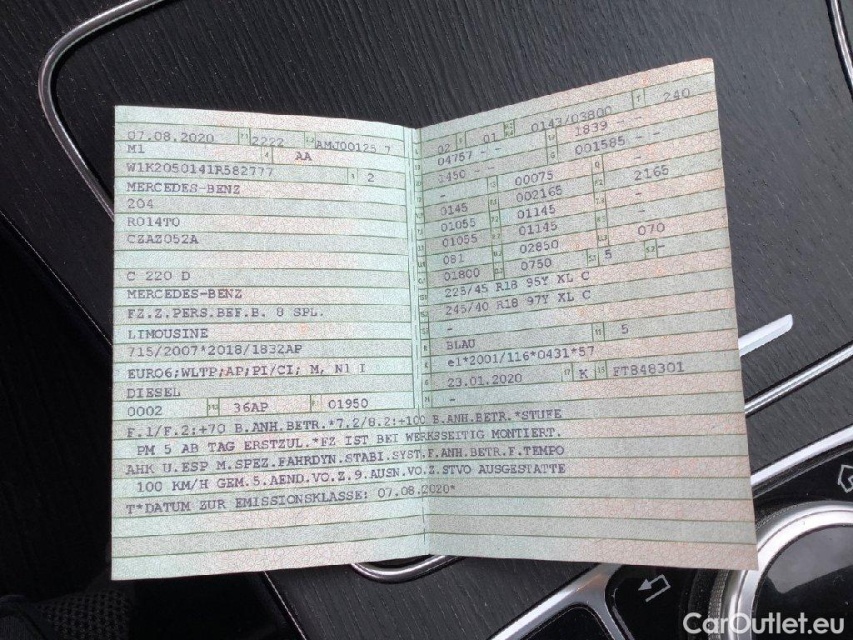 07.08.2020 2222 AMJ00125 7
M1 AA
W1K2050141R582777 2
MERCEDES-BENZ
204
R014T0
CZAZ052A
C 220 D
MERCEDES-BENZ
FZ.Z.PERS.BEF.B. 8 SPL.
LIMOUSINE
715/2007*2018/1832AP
EURO6;WLTP;AP;PI/CI; M, N1 I
DIESEL
0002 36AP 01950
02 01 0143/03800 240
04757 - - 1839 - -
1450 - - 001585 - -
- 00075
0145 002165 2165
01055 01145 -
01055 01145 -
081 02850 070
01800 0750 5 -
225/45 R18 95Y XL C
245/40 R18 97Y XL C
-
BLAU 5
e1*2001/116*0431*57
23.01.2020 K FT848301
-
F.1/F.2:+70 B.ANH.BETR.*7.2/8.2:+100 B.ANH.BETR.*STUFE
PM 5 AB TAG ERSTZUL.*FZ IST BEI WERKSSEITIG MONTIERT.
AHK U.ESP M.SPEZ.FAHRDYN.STABI.SYST.F.ANH.BETR.F.TEMPO
100 KM/H GEM.5.AEND.VO.Z.9.AUSN.VO.Z.STVO AUSGESTATTE
T*DATUM ZUR EMISSIONSKLASSE: 07.08.2020*
CarOutlet.eu